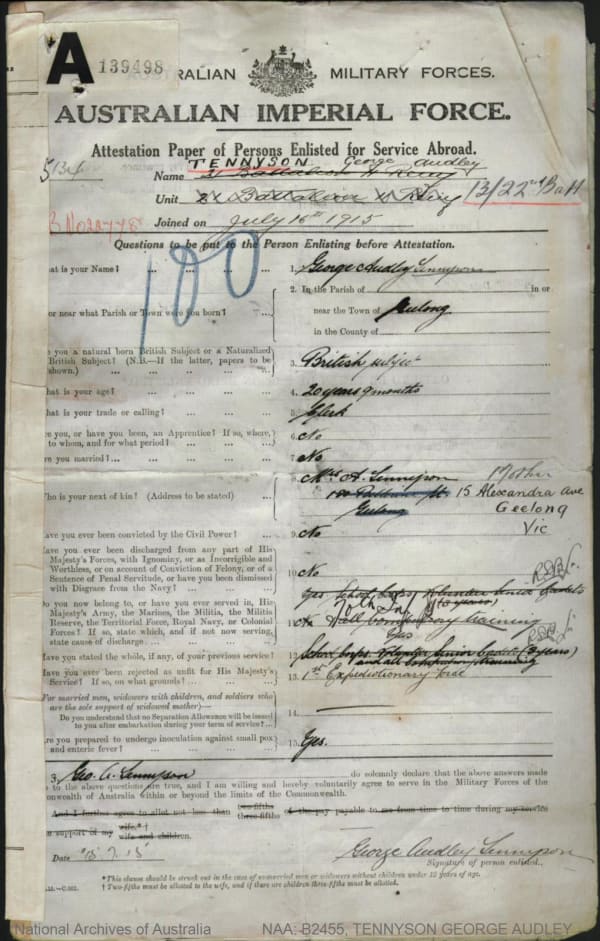 A 139498
AUSTRALIAN MILITARY FORCES.
AUSTRALIAN IMPERIAL FORCE.
Attestation Paper of Persons Enlisted for Service Abroad.
TENNYSON George Audley
Name
Unit 13/22nd Batt
Joined on July 16th 1915
Questions to be put to the Person Enlisting before Attestation.
100
hat is your Name? ... ... ... ... 1. George Audley Tennyson
2. In the Parish of in or
or near what Parish or Town were you born? ... near the Town of Geelong
in the County of
e you a natural born British Subject or a Naturalized
British Subject? (N.B.—If the latter, papers to be
shown.) ... ... ... ... 3. British subject
hat is your age? ... ... ... ... 4. 20 years 9 months
hat is your trade or calling? ... ... ... 5. Clerk
re you, or have you been, an Apprentice? If so, where,
to whom, and for what period? ... ... ... 6. No
re you married? ... ... ... ... 7. No
8. Mrs A. Tennyson Mother
15 Alexandra Ave
ho is your next of kin? (Address to be stated) ... Geelong Geelong
Vic
ave you ever been convicted by the Civil Power? ... 9. No
ave you ever been discharged from any part of His
Majesty's Forces, with Ignominy, or as Incorrigible and
Worthless, or on account of Conviction of Felony, or of a
Sentence of Penal Servitude, or have you been dismissed
with Disgrace from the Navy? ... ... 10. No
Do you now belong to, or have you ever served, in His
Majesty's Army, the Marines, the Militia, the Militia
Reserve, the Territorial Force, Royal Navy, or Colonial
Forces? If so, state which, and if not now serving,
state cause of discharge ... 11. 70th Inf
ave you stated the whole, if any, of your previous service? 12. Yes
ave you ever been rejected as unfit for His Majesty's
Service? If so, on what grounds? ... 13. 1st Expeditionary force
For married men, widowers with children, and soldiers who
are the sole support of widowed mother)—
Do you understand that no Separation Allowance will be issued
to you after embarkation during your term of service? ... 14.
re you prepared to undergo inoculation against small pox
and enteric fever? ... ... ... ... 15. Yes.
3, Geo. A. Tennyson do solemnly declare that the above answers made
to the above questions are true, and I am willing and hereby voluntarily agree to serve in the Military Forces of the
onwealth of Australia within or beyond the limits of the Commonwealth.
And I further agree to allot not less than two-fifths three-fifths of the pay payable to me from time to time during my service
e support of my wife.*†
wife and children.
Date 15.7.15 George Audley Tennyson
Signature of person enlisted.
*This clause should be struck out in the case of unmarried men or widowers without children under 18 years of age.
† Two-fifths must be allotted to the wife, and if there are children three-fifths must be allotted.
National Archives of Australia NAA: B2455, TENNYSON GEORGE AUDLEY